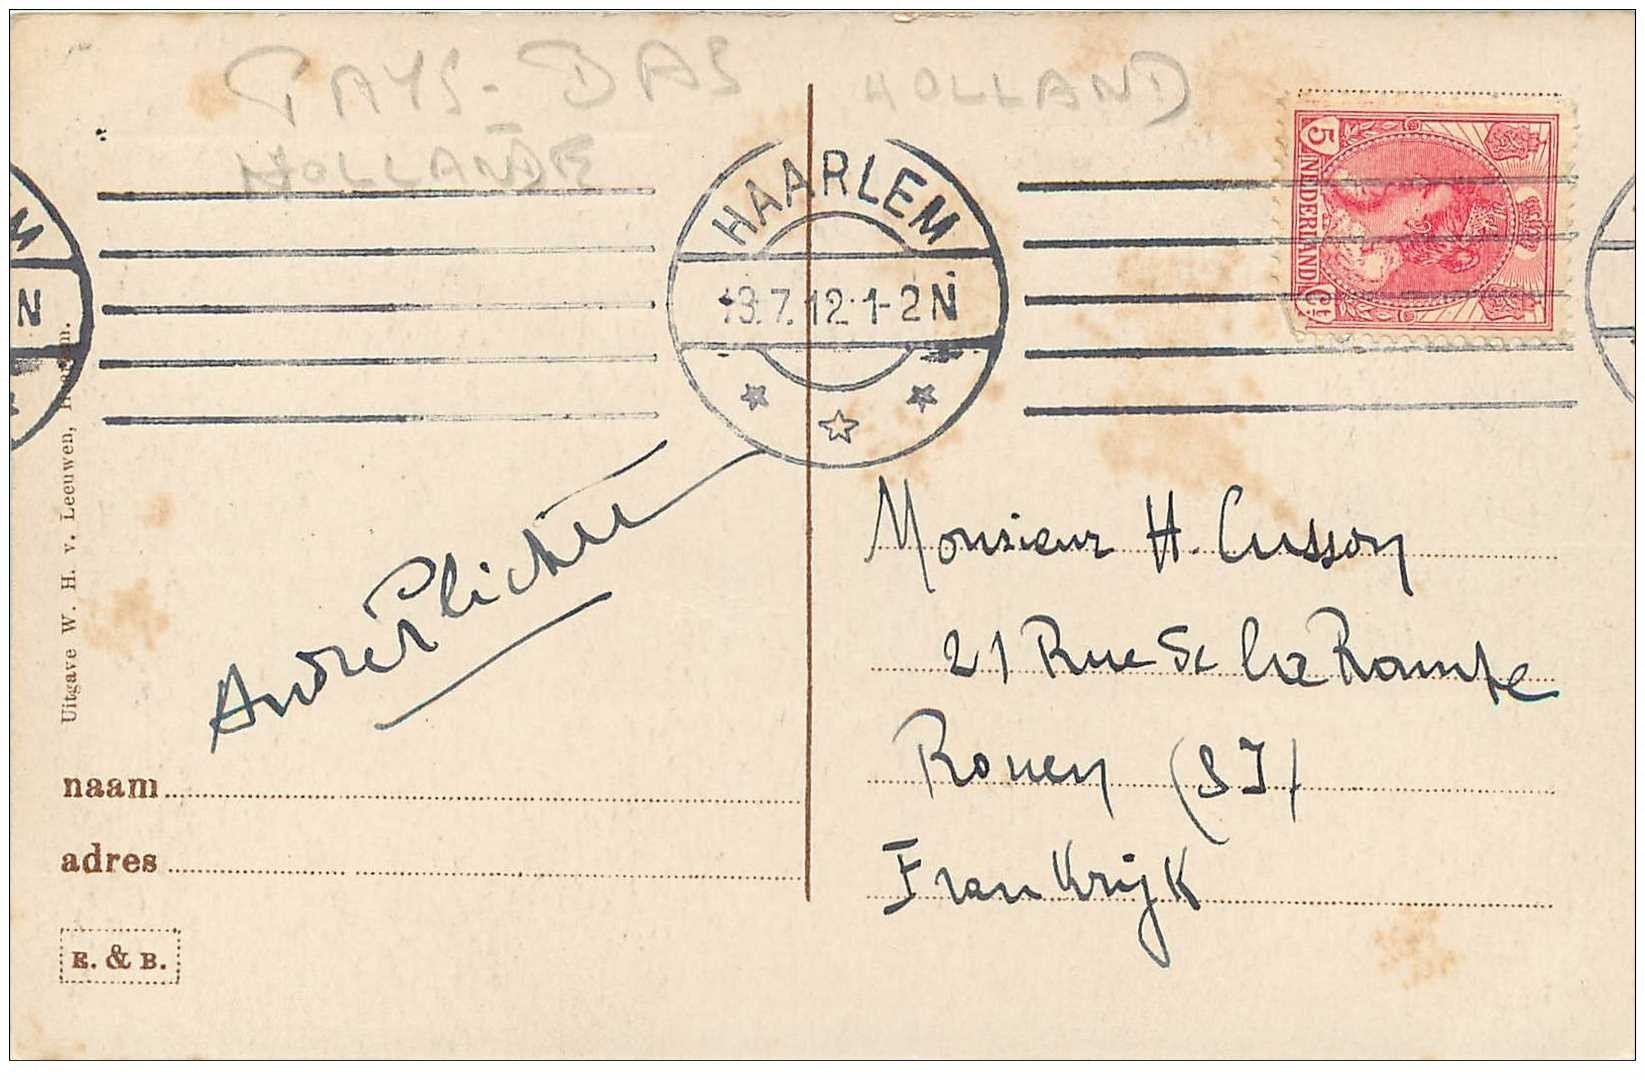 PAYS-BAS
HOLLANDE
HOLLAND
HAARLEM
13.7.12.1-2N
M
N
5 NEDERLAND Ct.
Uitgave W. H. v. Leeuwen, Haarlem.
André Plichet
Monsieur H. Cusson
21 Rue
Rouen (SI)
Frankrijk
naam
adres
E. & B.